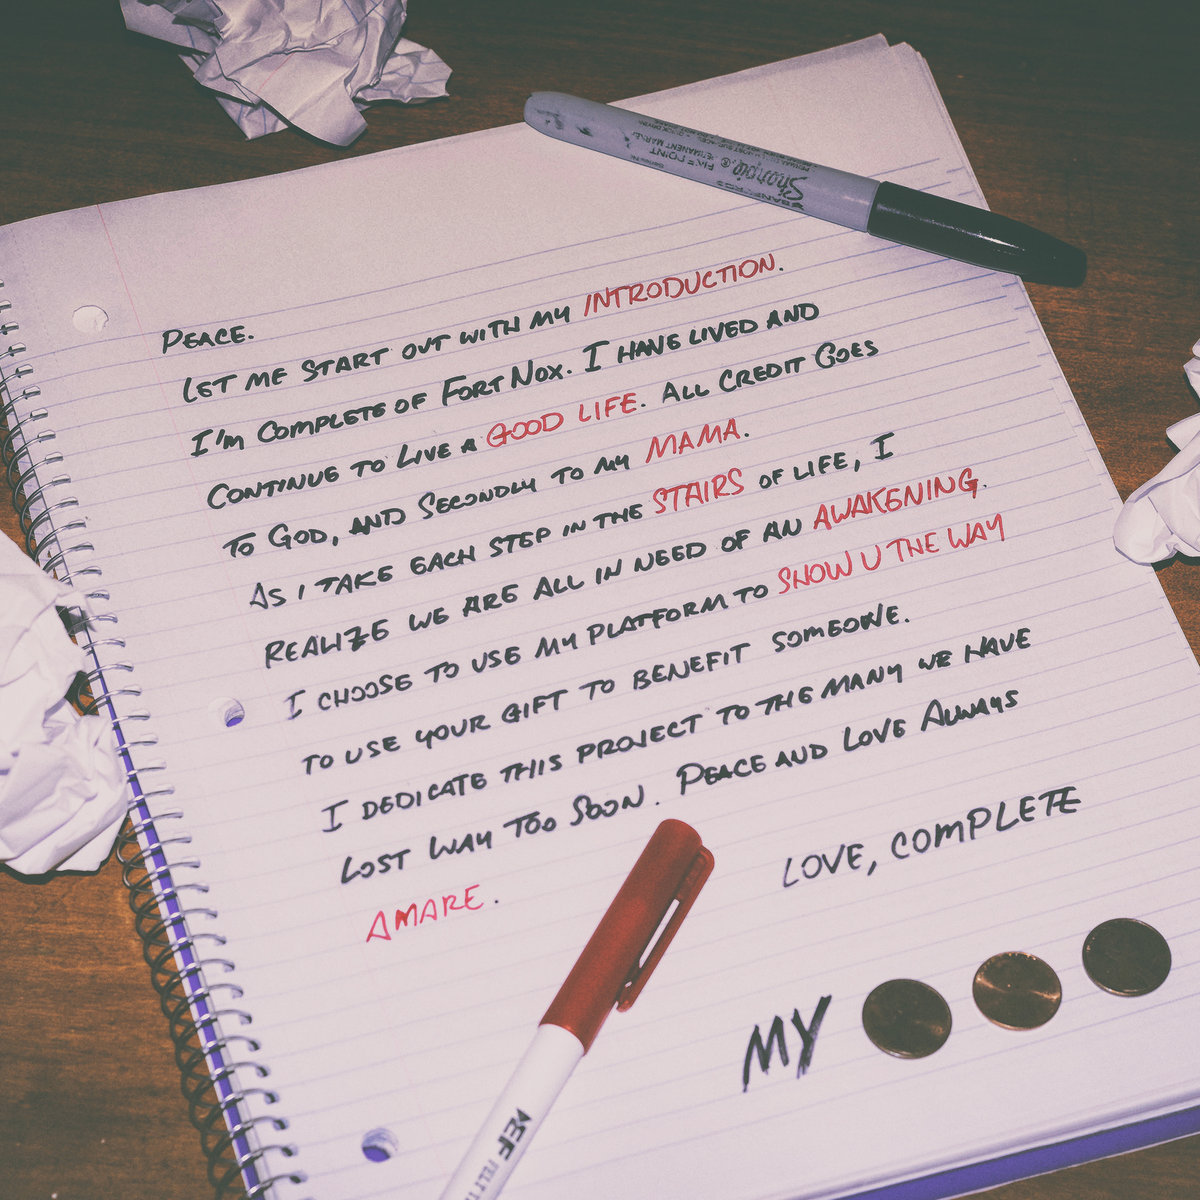 Sharpie
FINE POINT
PERMANENT MARKER
PEACE.
LET ME START OUT WITH MY INTRODUCTION.
I'M COMPLETE OF FORT NOX. I HAVE LIVED AND
CONTINUE TO LIVE A GOOD LIFE. ALL CREDIT GOES
TO GOD, AND SECONDLY TO MY MAMA.
AS I TAKE EACH STEP IN THE STAIRS OF LIFE, I
REALIZE WE ARE ALL IN NEED OF AN AWAKENING.
I CHOOSE TO USE MY PLATFORM TO SHOW U THE WAY
TO USE YOUR GIFT TO BENEFIT SOMEONE.
I DEDICATE THIS PROJECT TO THE MANY WE HAVE
LOST WAY TOO SOON. PEACE AND LOVE ALWAYS
AMARE.
LOVE, COMPLETE
MY